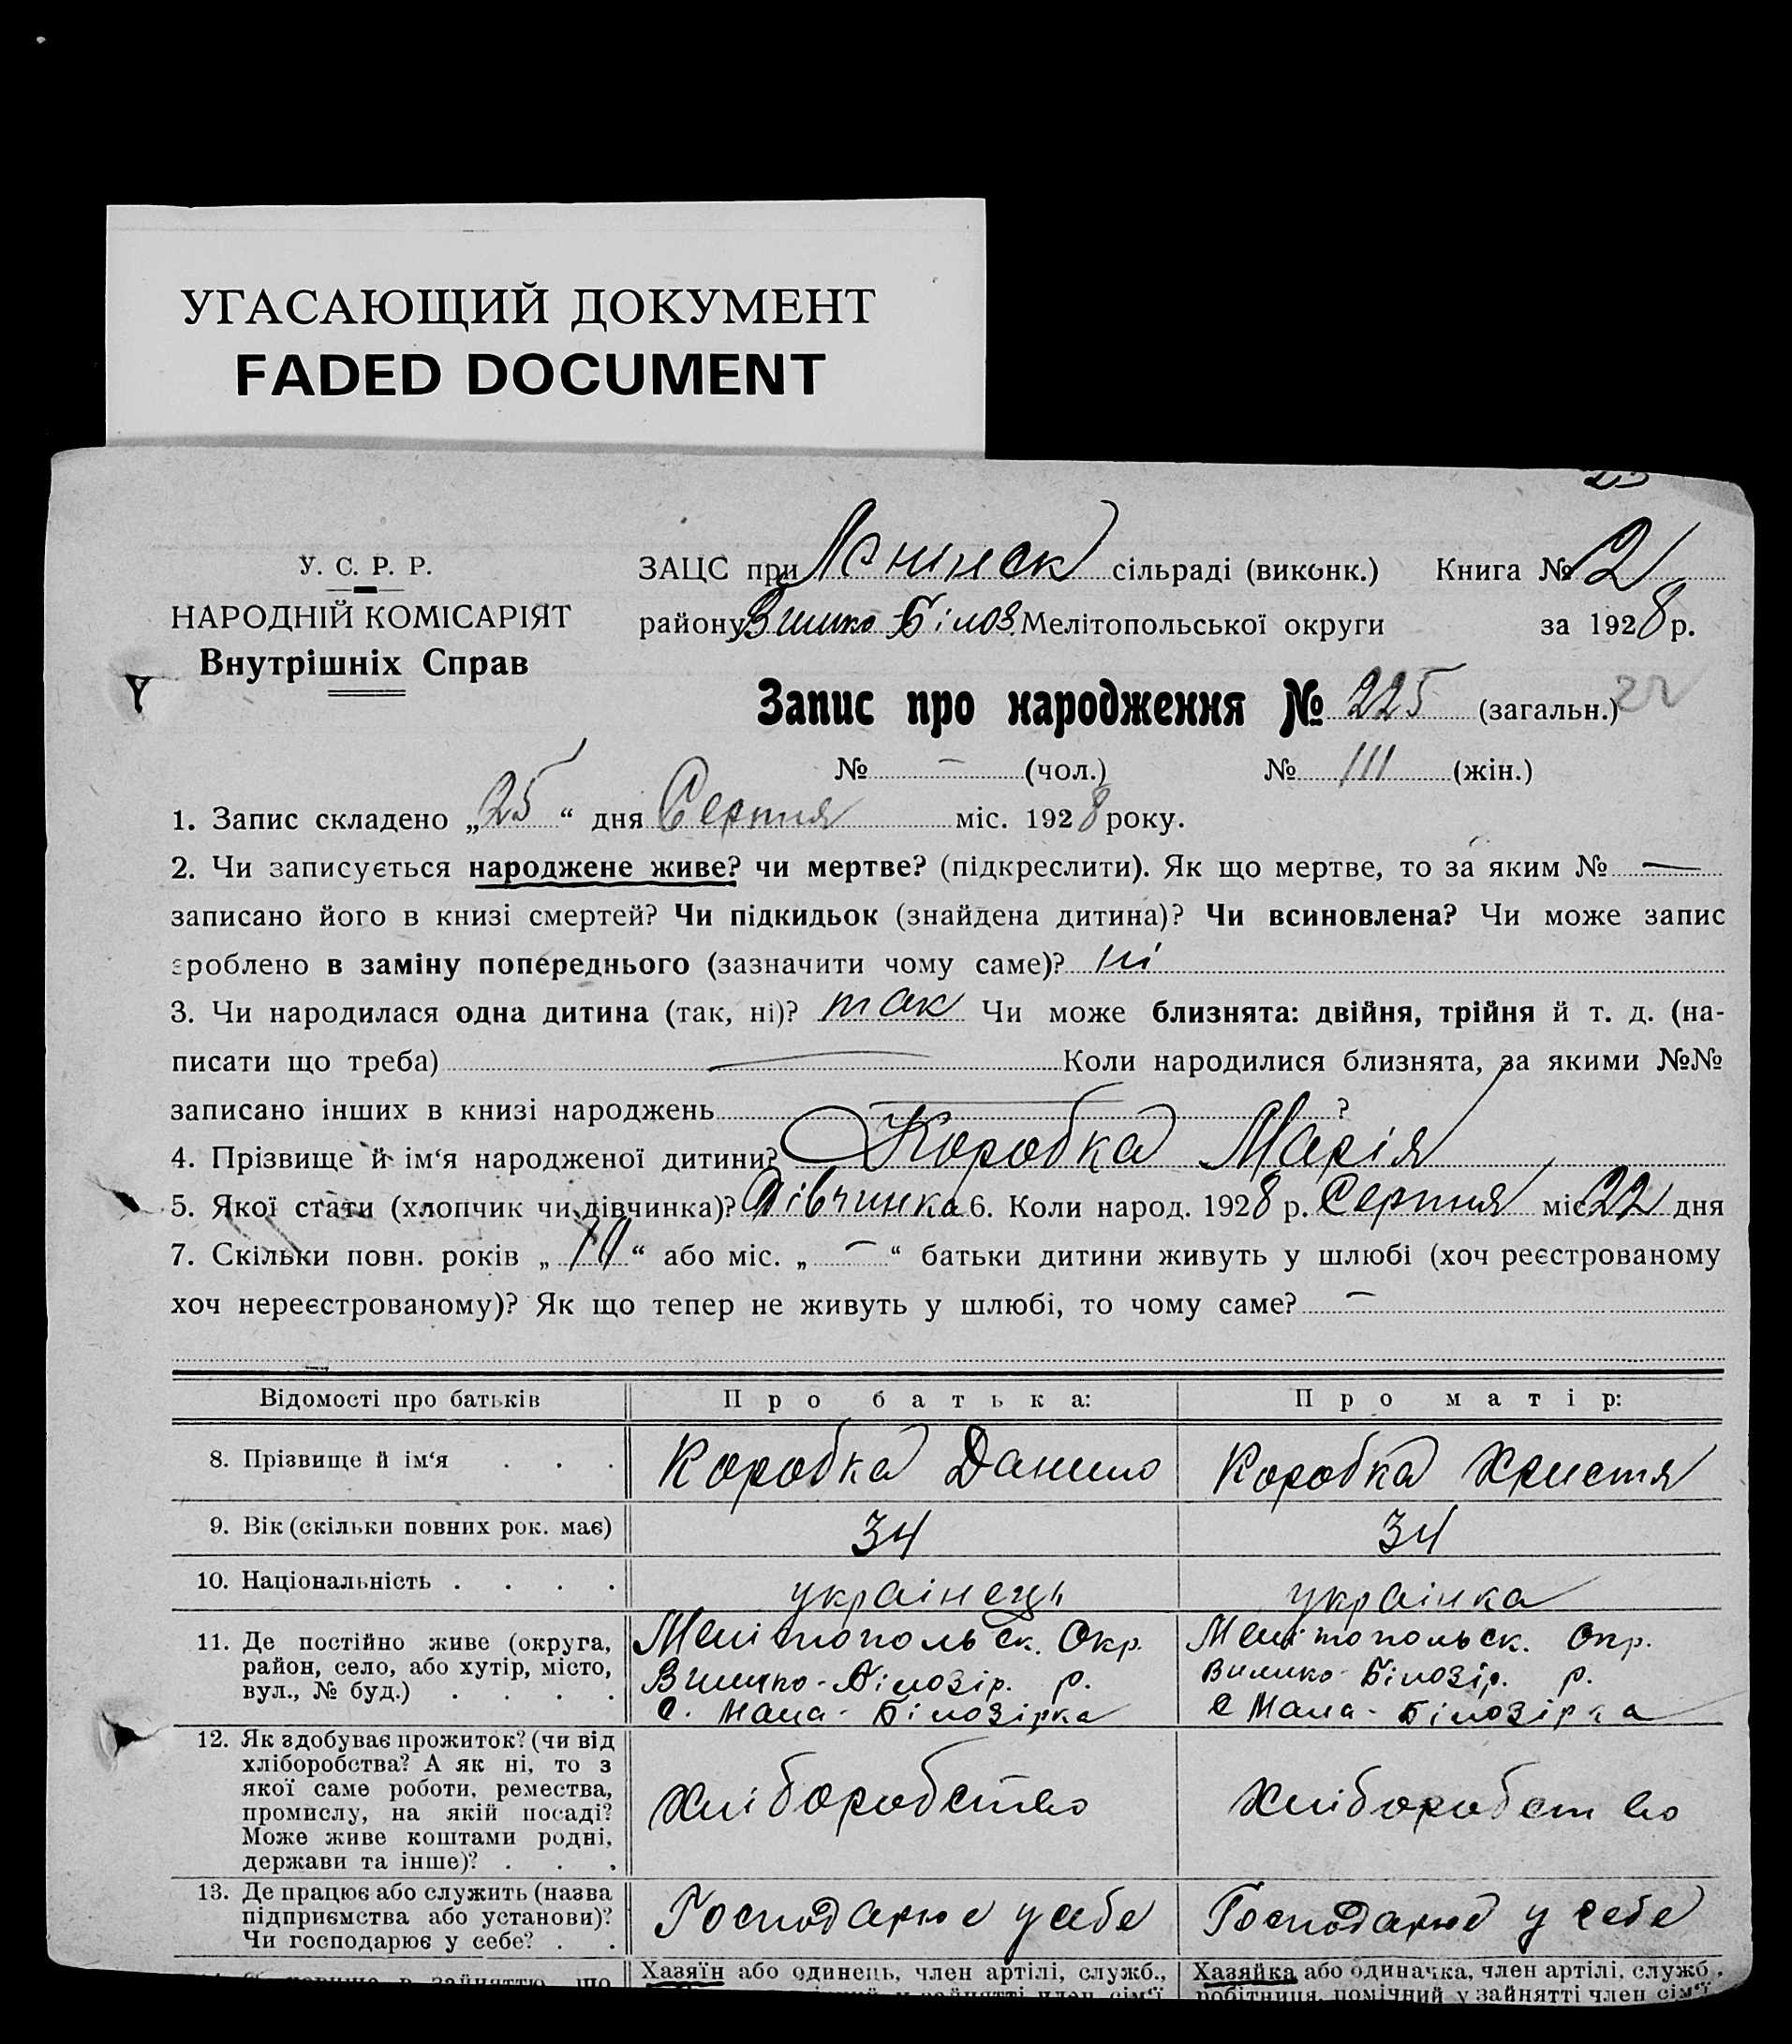 УГАСАЮЩИЙ ДОКУМЕНТ
FADED DOCUMENT
У. С. Р. Р.
НАРОДНІЙ КОМІСАРІЯТ
Внутрішніх Справ
ЗАЦС при Ленінск сільраді (виконк.) Книга № 2
району Велико Білоз. Мелітопольської округи за 1928 р.
Запис про народження № 225 (загальн.) 22
№ — (чол.) № 111 (жін.)
1. Запис складено „25“ дня Серпня міс. 1928 року.
2. Чи записується народжене живе? чи мертве? (підкреслити). Як що мертве, то за яким № —
записано його в книзі смертей? Чи підкидьок (знайдена дитина)? Чи всиновлена? Чи може запис
зроблено в заміну попереднього (зазначити чому саме)? ні
3. Чи народилася одна дитина (так, ні)? так Чи може близнята: двійня, трійня й т. д. (на-
писати що треба) — Коли народилися близнята, за якими №№
записано інших в книзі народжень — ?
4. Прізвище й ім‘я народженої дитини? Коробка Марія
5. Якої стати (хлопчик чи дівчинка)? Дівчинка 6. Коли народ. 1928 р. Серпня міс. 22 дня
7. Скільки повн. років „ “ або міс. „—“ батьки дитини живуть у шлюбі (хоч реєстрованому
хоч нереєстрованому)? Як що тепер не живуть у шлюбі, то чому саме? —
Відомості про батьків Про батька: Про матір:
8. Прізвище й ім‘я . . . Коробка Данило Коробка Христя
9. Вік (скільки повних рок. має) 34 34
10. Національність . . . . українець українка
11. Де постійно живе (округа,
район, село, або хутір, місто,
вул., № буд.) . . . .
Мелітопольск. Окр.
Велико-Білозір. р.
с. Мала-Білозірка
Мелітопольск. Окр.
Велико-Білозір. р.
с Мала-Білозірка
12. Як здобуває прожиток? (чи від
хліборобства? А як ні, то з
якої саме роботи, ремества,
промислу, на якій посаді?
Може живе коштами родні,
держави та інше)? . . .
хліборобство
хліборобство
13. Де працює або служить (назва
підприємства або установи)?
Чи господарює у себе? . .
Господарює у себе
Господарює у себе
Хазяїн або одинець, член артілі, служб.,
Хазяйка або одиначка, член артілі, служб.,
робітниця, помічний у зайнятті член сім‘ї